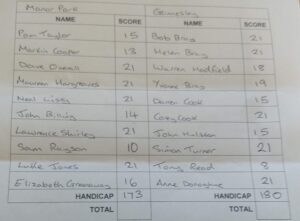 Manor Park Grimesley
NAME SCORE NAME SCORE
Pam Taylor 15 Bob Bray 21
Martin Cooper 13 Helen Bray 21
Dave Overall 21 Warren Hadfield 18
Maureen Hargreaves 21 Yvonne Bray 19
Neal Lissy 21 Darren Cook 15
John Billing 14 Corey Cook 21
Lawrence Shirley 21 John Hulston 15
Sam Rayson 10 Simon Turner 21
Luke Jones 21 Tony Read 8
Elizabeth Greenway 16 Anne Donoghue 21
HANDICAP 173 HANDICAP 180
TOTAL TOTAL